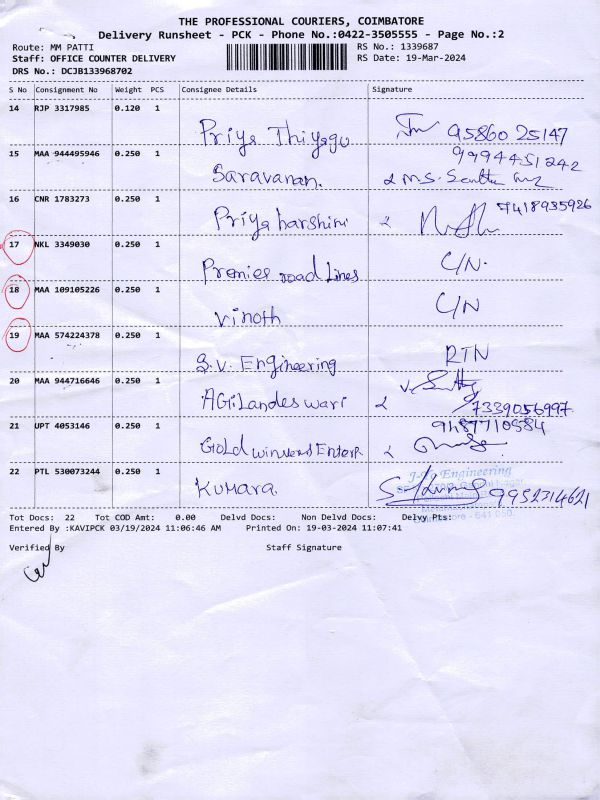 THE PROFESSIONAL COURIERS, COIMBATORE
Delivery Runsheet - PCK - Phone No.:0422-3505555 - Page No.:2
Route: MM PATTI RS No.: 1339687
Staff: OFFICE COUNTER DELIVERY RS Date: 19-Mar-2024
DRS No.: DCJB133968702
S No Consignment No Weight PCS Consignee Details Signature
14 RJP 3317985 0.120 1
Priya Thiyagu 95860 25147
15 MAA 944495946 0.250 1 9994451242
Saravanan. M.S.
16 CNR 1783273 0.250 1 9418935926
Priya harshini
17 NKL 3349030 0.250 1 C/N.
Premier road Lines
18 MAA 109105226 0.250 1 C/N
Vinoth
19 MAA 574224378 0.250 1 RTN
S.V. Engineering
20 MAA 944716646 0.250 1
AGiLandeswari 7339056997
21 UPT 4053146 0.250 1 9487710584
Gold winwend Enterp.
22 PTL 530073244 0.250 1 Engineering
Kumara. 9952314621
Tot Docs: 22 Tot COD Amt: 0.00 Delvd Docs: Non Delvd Docs: Delvy Pts:
Entered By :KAVIPCK 03/19/2024 11:06:46 AM Printed On: 19-03-2024 11:07:41
Verified By Staff Signature